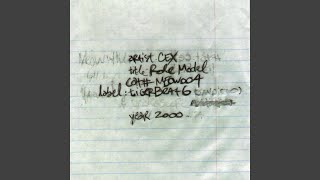 artist CEX
title Role Model
CAT# MEOW004
label: tiGERBEAt6
year 2000